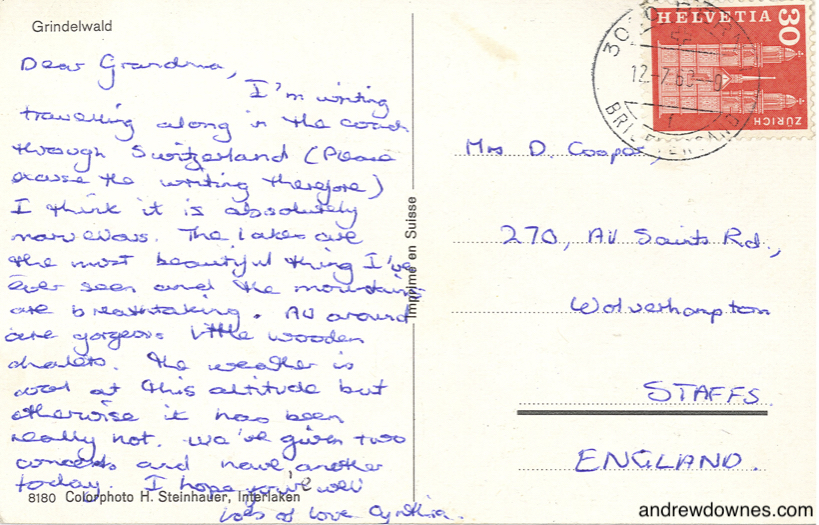 Grindelwald
Dear Grandma,
I'm writing
travelling along in the coach
through Switzerland (Please
excuse the writing therefore)
I think it is absolutely
marvellous. The lakes are
the most beautiful thing I've
ever seen and the mountains
are breathtaking. All around
are gorgeous little wooden
chalets. The weather is
cool at this altitude but
otherwise it has been
really hot. We've given two
concerts and have another
today. I hope you're well
lots of love Cynthia.
8180 Colorphoto H. Steinhauer, Interlaken
Imprimé en Suisse
HELVETIA
30
ZÜRICH
Mrs D. Cooper,
270, All Saints Rd.,
Wolverhampton
STAFFS
ENGLAND.
andrewdownes.com